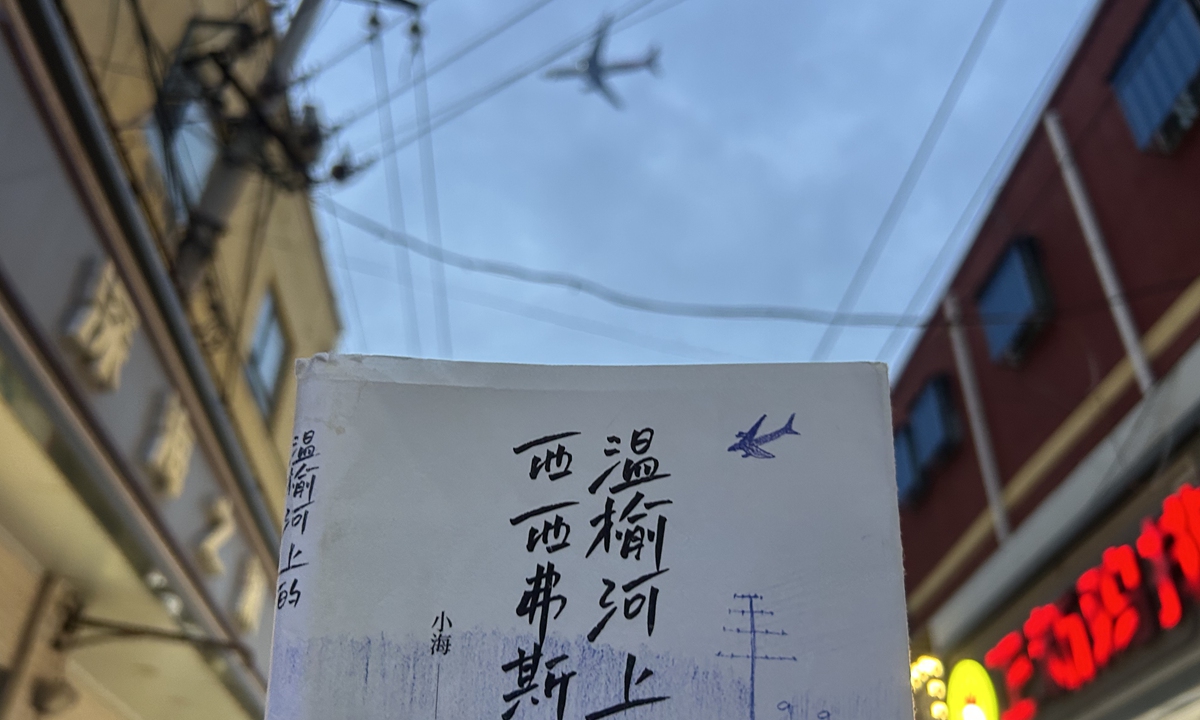 温榆河上
西西弗斯
小海
温榆河上的